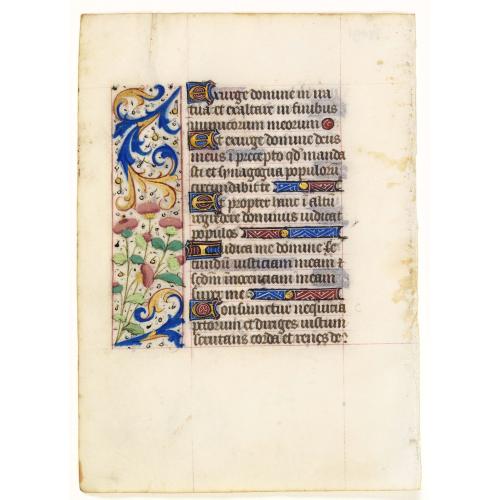 Exurge domine in ira
tua et exaltare in finibus
inimicorum meorum
Et exurge domine deus
meus i precepto qd manda
sti et synagogua populorū
circundabit te
Et propter hanc i altū
regredere dominus iudicat
populos
Iudica me domine se
cundū iusticiam meam et
scdm inocenciam meam
super me
Consumetur nequicia
pctorum et diriges iustum
scrutans corda et renes de